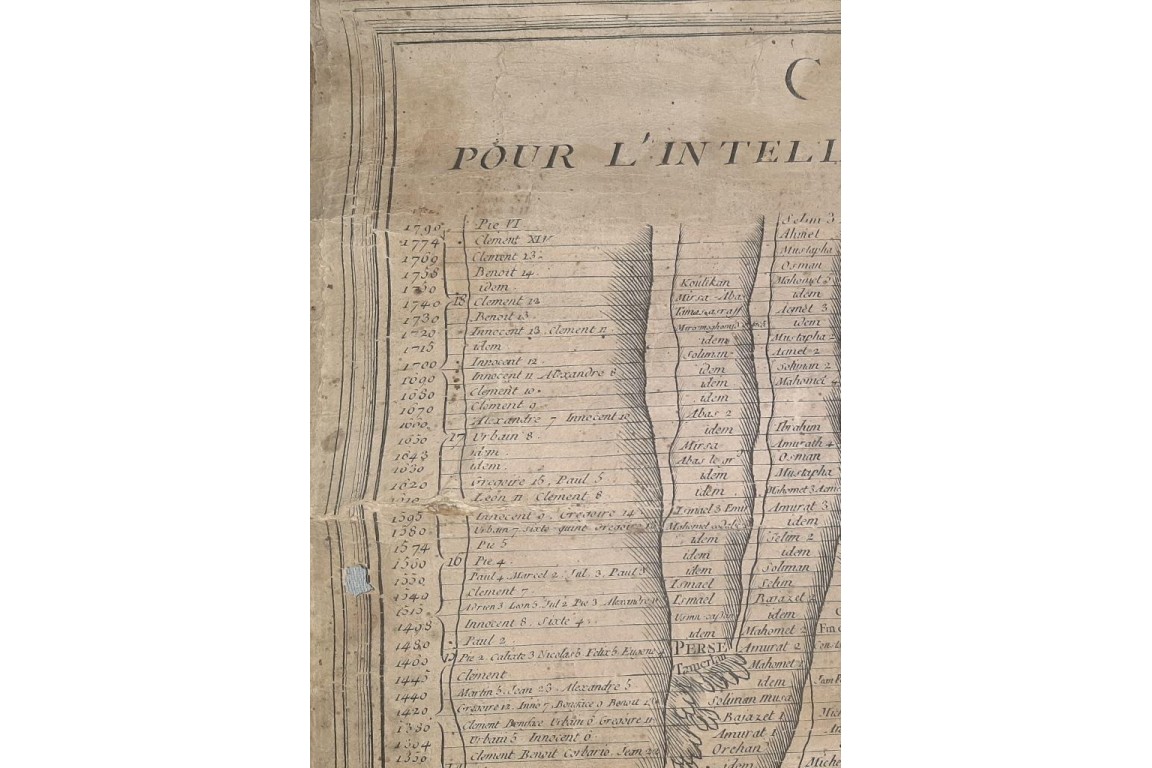 C
POUR L'INTELLI
1790 Pie VI Selim 3
1774 Clement XIV Ahmet
1769 Clement 13. Mustapha
1758 Benoit 14 Osman
1750 idem Koulikan Mahomet 5
1740 18 Clement 12 Mirsa Aba idem
1730 Benoit 13. Acmet 3
1720 Innocent 13. Clement 11 idem
1715 idem idem Mustapha 2
1700 Innocent 12. Soliman Acmet 2
1690 Innocent 11 Alexandre 8 idem Soliman 2
1680 Clement 10. idem Mahomet 4
1670 Clement 9 idem
Alexandre 7 Innocent 10 Abas 2
1650 17 Urbain 8 idem Ibrahim
1643 idem Mirsa Amurath 4
1630 idem Abas le gr Osman
1620 Gregoire 15, Paul 5 idem Mustapha
Léon 11 Clement 8 idem Mahomet 3
1595 Innocent 9. Gregoire 14 Amurat 3
1580 Urbain 7 Sixte quint Gregoire idem
1574 Pie 5 idem Selim 2
1560 16 Pie 4 idem idem
1550 Paul 4. Marcel 2. Jul. 3. Paul 3 idem Soliman
1540 Clement 7 Ismael Selim
1515 Adrien Leon Jul 2 Pie 3 Alexandre Ismael Bajazet 2
1498 Innocent 8. Sixte 4. idem
1480 Paul 2 idem Mahomet 2 Fin
1460 15 Pie 2 Calixte 3 Nicolas Felix Eugene 4 PERSE Amurat 2
1445 Clement Tamerlan Mahomet 1
1440 Martin 5. Jean 23. Alexandre 5 idem
1420 Gregoire 12. Inno 7. Boniface 9 Benoit Soliman musa
1380 Clement Boniface Urbain 6 Gregoire 11 Bajazet 1
Urbain 5 Innocent 6 Amurat 1
1350 Clement Benoit Corbario Jean Orchan
idem Miche